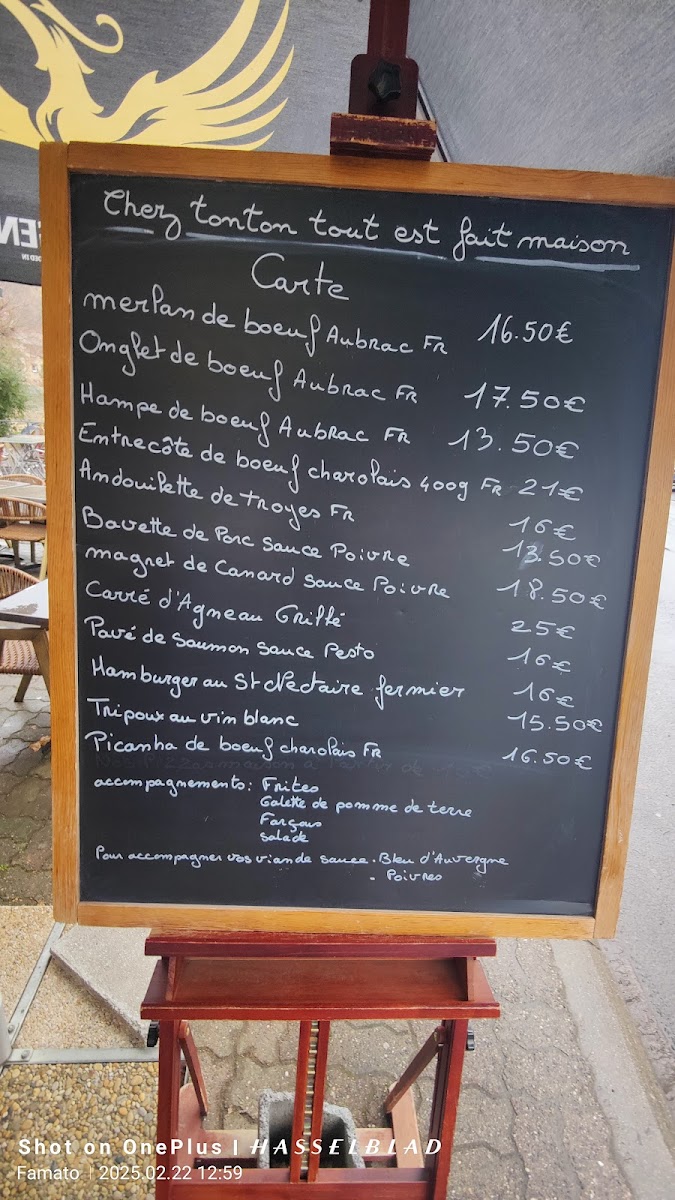 Chez tonton tout est fait maison
Carte
merlan de boeuf Aubrac FR 16.50€
Onglet de boeuf Aubrac FR 17.50€
Hampe de boeuf Aubrac FR 13.50€
Entrecôte de boeuf charolais 400g FR 21€
Andouillette de troyes FR 16€
Bavette de Porc Sauce Poivre 13.50€
magret de Canard Sauce Poivre 18.50€
Carré d'Agneau Grillé 25€
Pavé de Saumon Sauce Pesto 16€
Hamburger au St Nectaire fermier 16€
Tripoux au vin blanc 15.50€
Picanha de boeuf charolais FR 16.50€
accompagnements: Frites
Galette de pomme de terre
Farçous
Salade
Pour accompagner vos viande sauce . Bleu d'Auvergne
- Poivres
Shot on OnePlus | HASSELBLAD
Famato | 2025.02.22 12:59